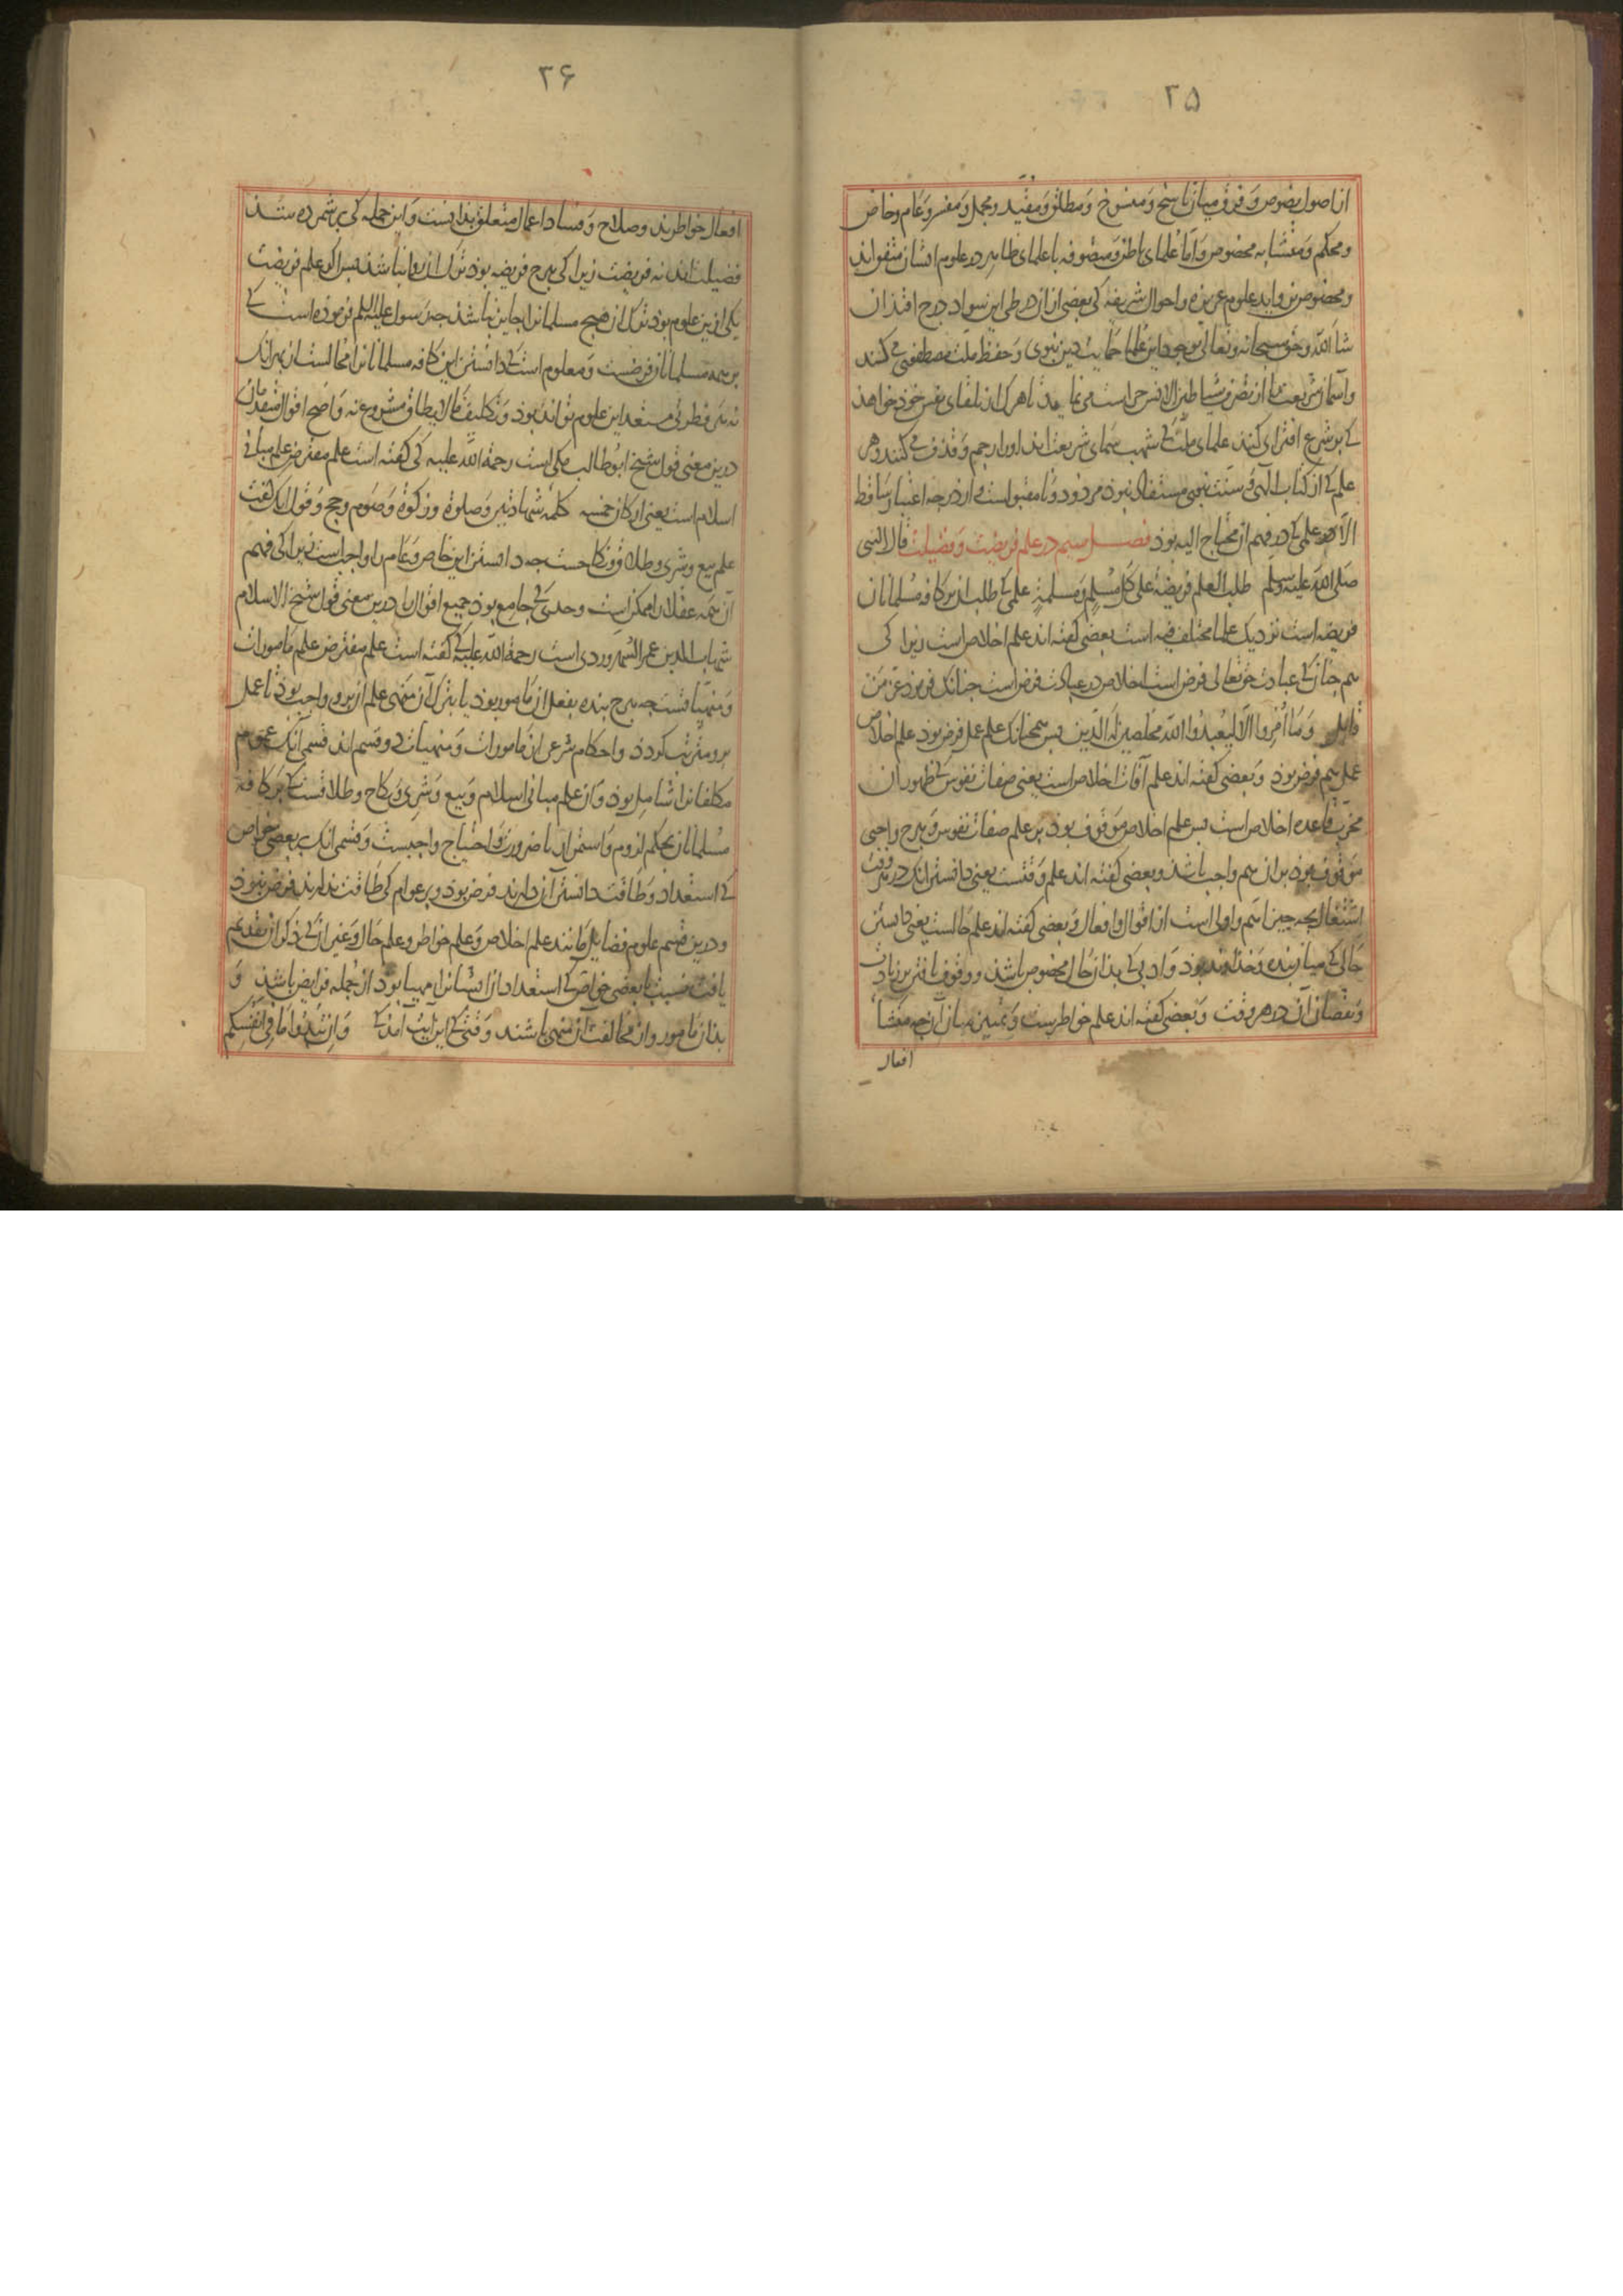 ۲۵
از اصول نصوص و فرق میان ناسخ و منسوخ و مطلق و مقید و مجمل و مفسر و عام و خاص
و محکم و متشابه مخصوص و اما علمای باطن و متصوفه با علمای ظاهر در علوم ایشان متفق‌اند
و مخصوص بزواید علوم عزیزه و احوال شریفه کی بعضی از ان در طی این سواد درج افتد ان
شاء الله و حق سبحانه و تعالی بوجود این علما حمایت دین نبوی و حفظ ملت مصطفوی می کند
و آسمان شریعت را از تصرف شیاطین الانس حراست می نماید تا هرک از تلقای نفس خود خواهذ
کی بر شرع افترای کند علمای ملت کی شهب سمای شریعت اند او را رجم و قذف می کنند و هر
علم کی از کتاب الهی و سنت نبوی مستفاد نبوذ مردود و نامقبول است و از درجه اعتبار ساقط
الا هر علمی کی در فهم ان محتاج الیه بوذ فصل سیم در علم فریضت و فضیلت قال النبی
صلی الله علیه وسلم طلب العلم فریضة علی کل مسلم و مسلمة علمی کی طلب ان بر کافه مسلمانان
فریضه است نزدیک علما مختلف فیه است بعضی کفته اند علم اخلاص است زیرا کی
هم جنانک عبادت حق تعالی فرض است اخلاص در عبادت فرض است جنانک فرموذ عز من
قایل و ما امروا الا لیعبدوا الله مخلصین له الدین بس همجنانک علم عمل فرض بوذ علم اخلاص
عمل هم فرض بوذ و بعضی کفته اند علم آفات اخلاص است یعنی صفات نفوس کی ظهور ان
مخرب قاعده اخلاص است بس علم اخلاص موقوف بوذ بر علم صفات نفوس و هرج واجبی
موقوف بوذ بران هم واجب باشذ و بعضی کفته اند علم وقتست یعنی دانستن انک در هر وقت
اشتغال بجه جیز اهم و اولی است از اقوال و افعال و بعضی کفته اند علم حالست یعنی دانستن
حالی کی میان بنده و خذاوند بوذ و ادبی کی بذان حال مخصوص باشذ و وقوف یافتن بر زیادت
و نقصان آن در هر وقت و بعضی کفته اند علم خواطرست و تمییز میان آن جه منشاء
افعال
۲۶
افعال خواطرند و صلاح و فساد اعمال متعلق بذانست و این جمله کی برشمرده شذ
فضیلت اند نه فریضت زیرا کی هرج فریضه بوذ ترک ان روا نباشذ بس اکر علم فریضت
یکی ازین علوم بوذ ترک ان هیج مسلمانرا جایز نباشذ جه رسول علیه السلم فرموده است کی
بر همه مسلمانان فرضست و معلوم است کی دانستن این کافه مسلمانانرا محالست از بهر انک
نه هر فطرتی مستعد این علوم تواند بوذ و تکلیف ما لا یطاق مشروع نه و اصح اقوال متقدمان
درین معنی قول شیخ ابو طالب مکی است رحمة الله علیه کی کفته است علم مفترض علم مبانی
اسلام است یعنی ارکان خمسه کلمه شهادتین و صلوة و زکوة و صوم و حج و قول انک کفت
علم بیع و شری و طلاق و نکاحست جه دانستن این خاص و عام را واجب است زیرا کی فهم
آن همه عقلا را ممکن است و حدی کی جامع بوذ جمیع اقوال را درین معنی قول شیخ الاسلام
شهاب الدین عمر السهروردی است رحمة الله علیه کی کفته است علم مفترض علم مامورات
و منهیاتست جه هرج بنده بفعل ان مامور بوذ یا بترک آن منهی علم ان برو واجب بوذ تا عمل
برو مترتب کردذ و احکام شرعی از مامورات و منهیات دو قسم اند قسمی آنک عموم
مکلفانرا شامل بوذ و آن علم مبانی اسلام و بیع و شری و نکاح و طلاقست کی بر کافه
مسلمانان بحکم لزوم و استمرار یا ضرورت و احتیاج واجبست و قسمی انک بر بعضی خواص
کی استعداد و طاقت دانستن آن دارند فرض بوذ و بر عوام کی طاقت ندارند فرض نبوذ
و درین قسم علوم فضایل مانند علم اخلاص و علم خواطر و علم حال و غیر آن کی ذکر ان تقدیم
یافت نسبت با بعضی خواص کی استعداد ان ایشانرا مهیا بوذ از جمله فرایض باشذ و
بذان مامور و از مخالفت آن منهی باشند وقتی کی این آیت آمذ کی و ان تبدوا ما فی انفسکم